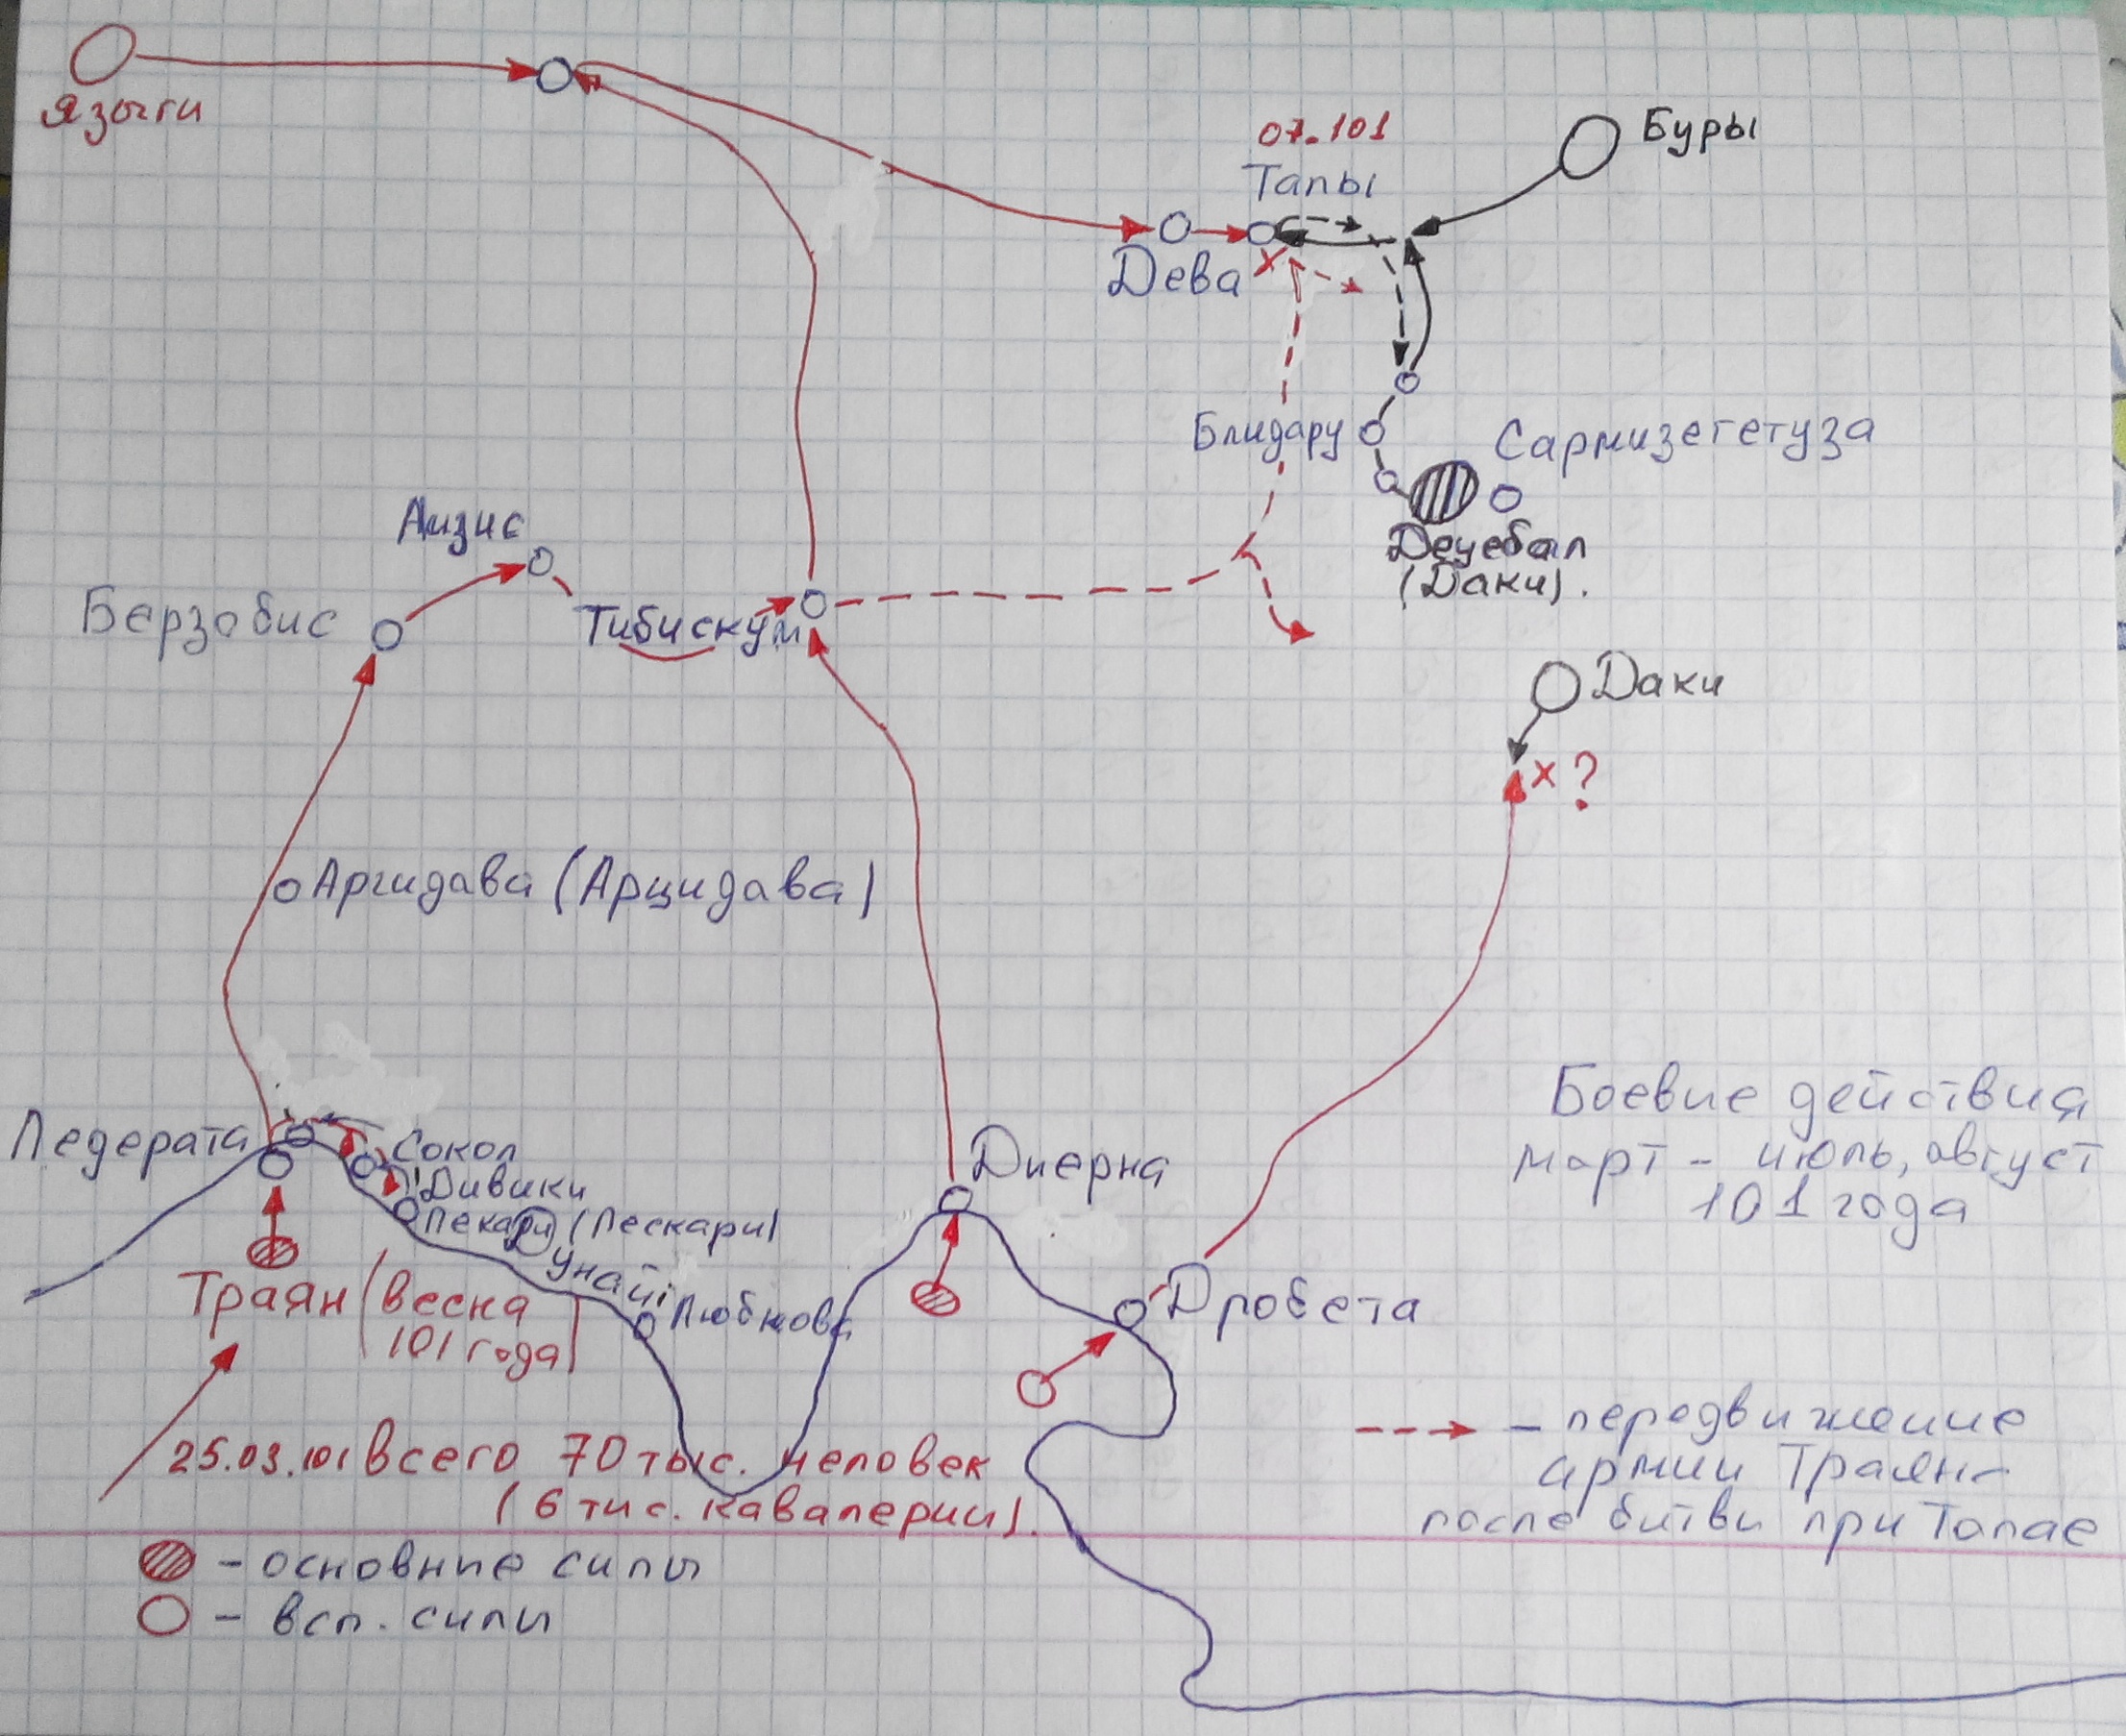 Языги
07.101
Тапы
Буры
Дева
Блидару
Сармизегетуза
Децебал
(Даки).
Аизис
Берзобис
Тибискум
Даки
х ?
Аргидава (Арцидава)
Боевие действия
март - июль, август
101 года
Ледерата
Сокол
Дивики
Пекари (Пескари)
Диерна
Траян (весна
101 года)
Любкова
Дробета
25.03.101 всего 70 тыс. человек
(6 тис. кавалерии).
- передвижение
армии Траяна
после битви при Тапае
- основние сили
- всп. сили